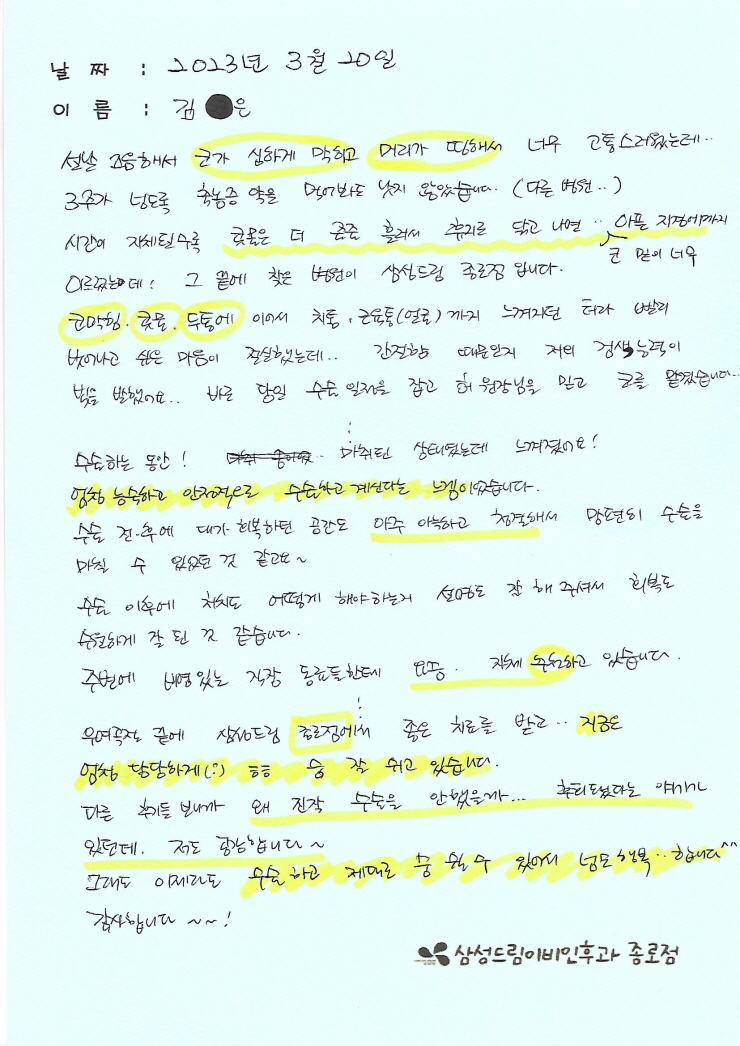 날 짜 : 2023년 3월 20일
이 름 : 김 ●은
설날 즈음해서 코가 심하게 막히고 머리가 띵해서 너무 고통스러웠는데..
3주가 넘도록 축농증 약을 먹어봐도 낫지 않았습니다. (다른 병원..)
시간이 지체될수록 콧물은 더 줄줄 흘러서 휴지로 닦고 나면.. 아픈 지경에까지
코 밑이 너무
이르렀는데! 그 끝에 찾은 병원이 삼성드림 종로점 입니다.
코막힘. 콧물. 두통에 이어서 치통, 근육통(얼굴)까지 느껴지던 터라 빨리
벗어나고 싶은 마음이 절실했는데.. 간절함 때문인지 저의 검색능력이
빛을 발했어요.. 바로 당일 수술 일정을 잡고 허 원장님을 믿고 코를 맡겼습니다..
수술하는 동안! 마취된 상태였는데 느껴졌어요!
엄청 능숙하고 안정적으로 수술하고 계신다는 느낌이었습니다.
수술 전·후에 대기·회복하던 공간도 아주 아늑하고 청결해서 만족히 수술을
마칠 수 있었던 것 같고요~
수술 이후에 처치도 어떻게 해야하는지 설명도 잘 해 주셔서 회복도
수월하게 잘 된 것 같습니다.
주변에 비염있는 직장 동료들한테 요즘. 자체 추천하고 있습니다.
우여곡절 끝에 삼성드림 종로점에서 좋은 치료를 받고.. 지금은
엄청 당당하게(:) ㅎㅎ 숨 잘 쉬고 있습니다.
다른 후기들 보니까 왜 진작 수술을 안했을까... 후회되셨다는 얘기가
있던데. 저도 공감합니다~
그래도 이제라도 수술하고 제대로 숨 쉴 수 있어서 넘나 행복..합니다^^
감사합니다~~!
삼성드림이비인후과 종로점